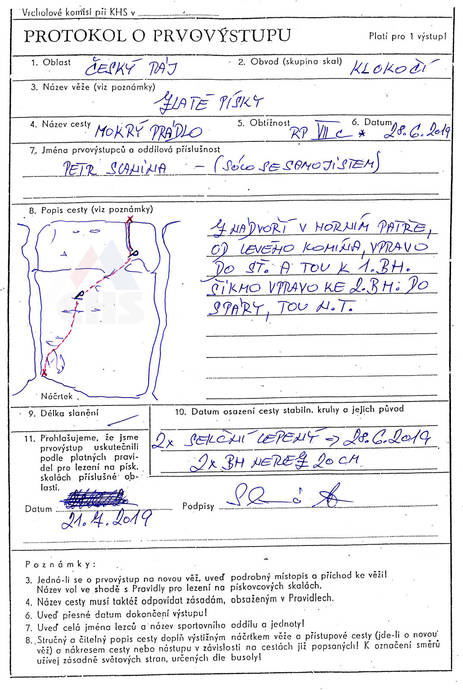 Vrcholové komisi při KHS v
PROTOKOL O PRVOVÝSTUPU
Platí pro 1 výstup!
1. Oblast ČESKÝ RÁJ 2. Obvod (skupina skal) KLOKOČÍ
3. Název věže (viz poznámky)
ZLATÉ PÍSKY
4. Název cesty MOKRÝ PRÁDLO 5. Obtížnost RP VII c * 6. Datum 28.6.2019
7. Jména prvovýstupců a oddílová příslušnost
PETR SLANINA – (SÓLO SE SAMOJISTEM)
8. Popis cesty (viz poznámky)
Z NÁDVOŘÍ V HORNÍM PATŘE,
OD LEVÉHO KOMÍNA, VPRAVO
DO ST. A TOU K 1. BH.
ŠIKMO VPRAVO KE 2. BH. DO
SPÁRY, TOU N.T.
KHS
Náčrtek
9. Délka slanění
10. Datum osazení cesty stabiln. kruhy a jejich původ
2x SEKČNÍ LEPENÝ → 28.6.2019
2x BH NEREZ 20 CM
11. Prohlašujeme, že jsme
prvovýstup uskutečnili
podle platných pravi-
del pro lezení na písk.
skalách příslušné ob-
lasti.
Datum 21.7.2019 Podpisy
Poznámky:
3. Jedná-li se o prvovýstup na novou věž, uveď podrobný místopis a příchod ke věži!
Název vol ve shodě s Pravidly pro lezení na pískovcových skalách.
4. Název cesty musí taktéž odpovídat zásadám, obsaženým v Pravidlech.
6. Uveď přesné datum dokončení výstupu!
7. Uveď celá jména lezců a název sportovního oddílu a jednoty!
8. Stručný a čitelný popis cesty doplň výstižným náčrtkem věže a přístupové cesty (jde-li o novou
věž) a nákresem cesty nebo nástupu v závislosti na cestách již popsaných! K označení směrů
užívej zásadně světových stran, určených dle busoly!